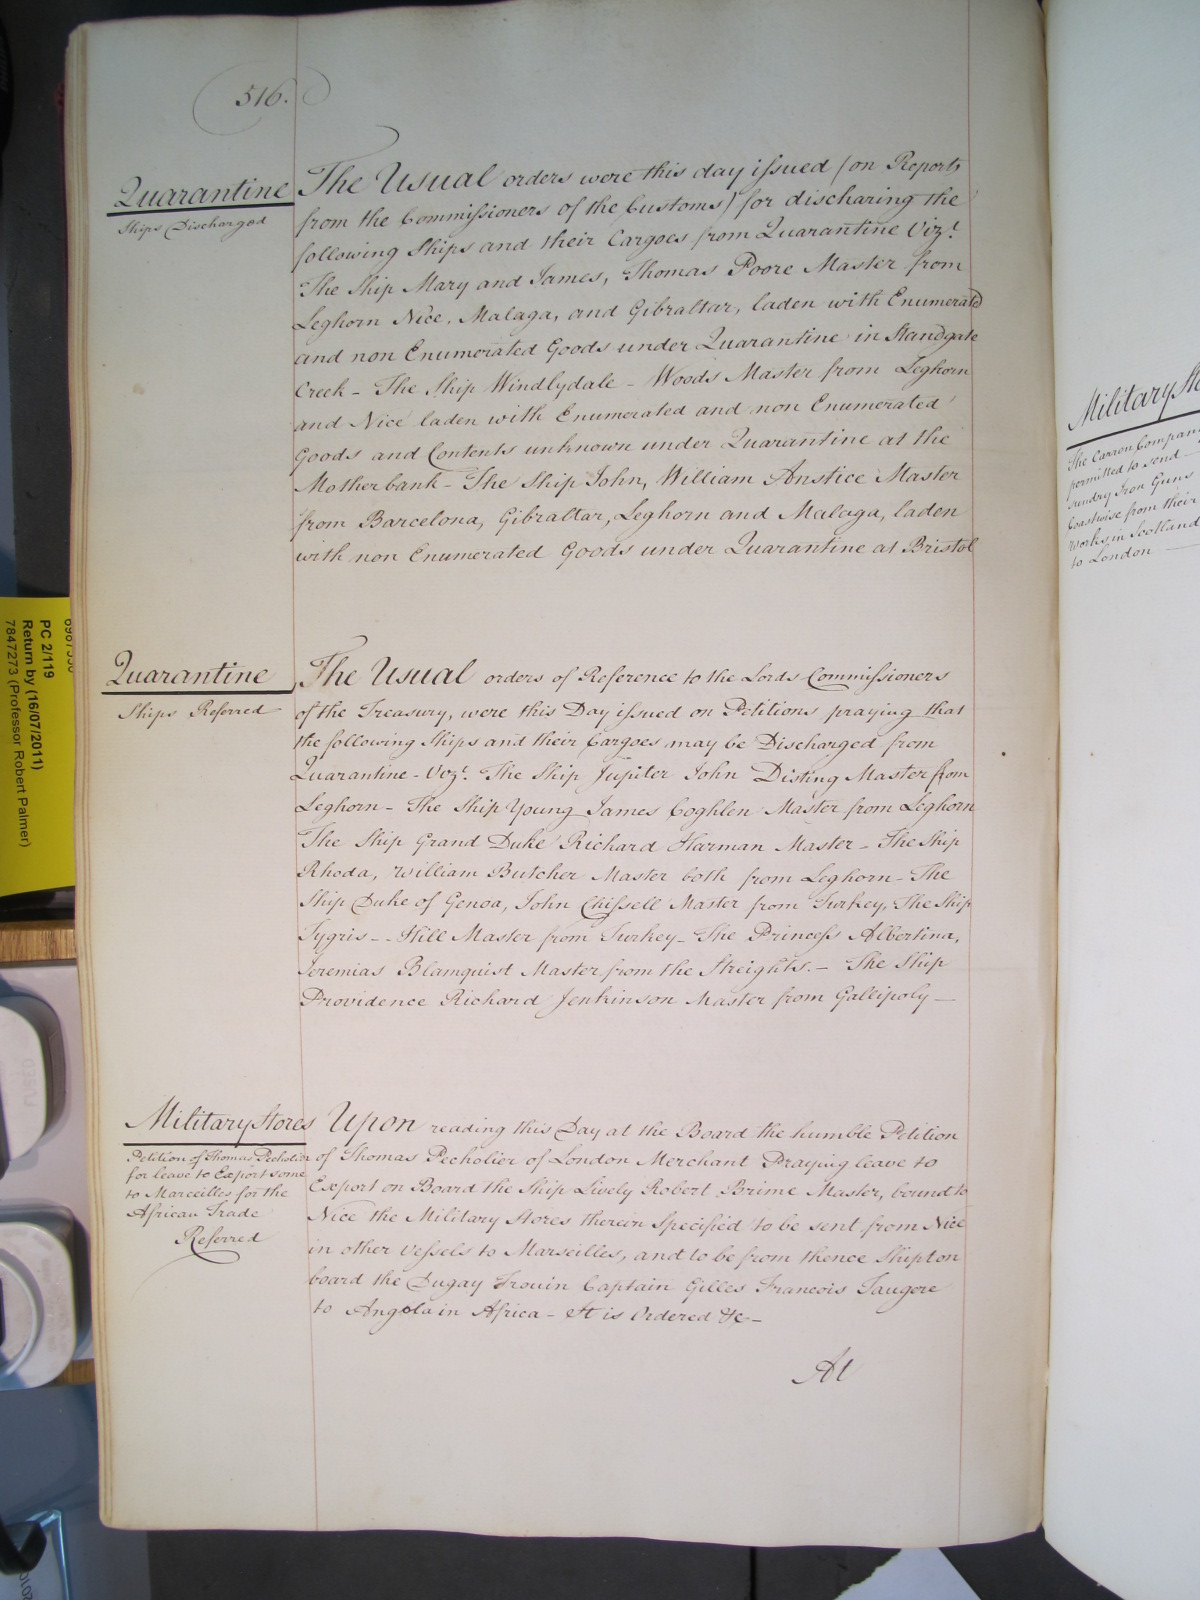 516.
Quarantine
Ships Discharged
The Usual orders were this day issued (on Reports
from the Commissioners of the Customs) for discharging the
following Ships and their Cargoes from Quarantine Vizt.
The Ship Mary and James, Thomas Poore Master from
Leghorn Nice, Malaga, and Gibraltar, laden with Enumerated
and non Enumerated Goods under Quarantine in Standgate
Creek - The Ship Windlydale - Woods Master from Leghorn
and Nice laden with Enumerated and non Enumerated
Goods and Contents unknown under Quarantine at the
Motherbank - The Ship John, William Anstice Master
from Barcelona, Gibraltar, Leghorn and Malaga, laden
with non Enumerated Goods under Quarantine at Bristol
Quarantine
Ships Referred
The Usual orders of Reference to the Lords Commissioners
of the Treasury, were this Day issued on Petitions praying that
the following Ships and their Cargoes may be Discharged from
Quarantine - Vizt. The Ship Jupiter John Disting Master from
Leghorn - The Ship Young James Coghlen Master from Leghorn
The Ship Grand Duke Richard Harman Master - The Ship
Rhoda, William Butcher Master both from Leghorn - The
Ship Duke of Genoa, John Chissell Master from Turkey, The Ship
Tygris - - Hill Master from Turkey - The Princess Albertina,
Jeremias Blamquist Master from the Streights. - The Ship
Providence Richard Jenkinson Master from Gallipoly -
Military Stores
Petition of Thomas Pecholier
for leave to Export some
to Marceilles for the
African Trade
Referred
Upon reading this Day at the Board the humble Petition
of Thomas Pecholier of London Merchant Praying leave to
Export on Board the Ship Lively Robert Prime Master, bound to
Nice the Military Stores therein Specified to be sent from Nice
in other Vessels to Marseilles, and to be from thence Shipt on
board the Dugay Trouin Captain Gilles Francois Taugore
to Angola in Africa - It is Ordered &c -
At
Military Sto
The Carron Company
permitted to send
sundry Iron Guns
Coastwise from their
works in Scotland
to London
PC 2/119
Return by (16/07/2011)
7847273 (Professor Robert Palmer)